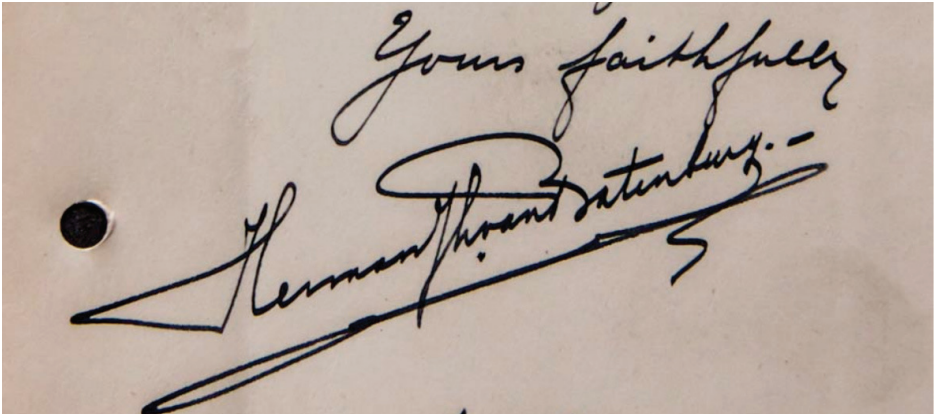 Yours faithfully
Herman Th. van Batenburg.-